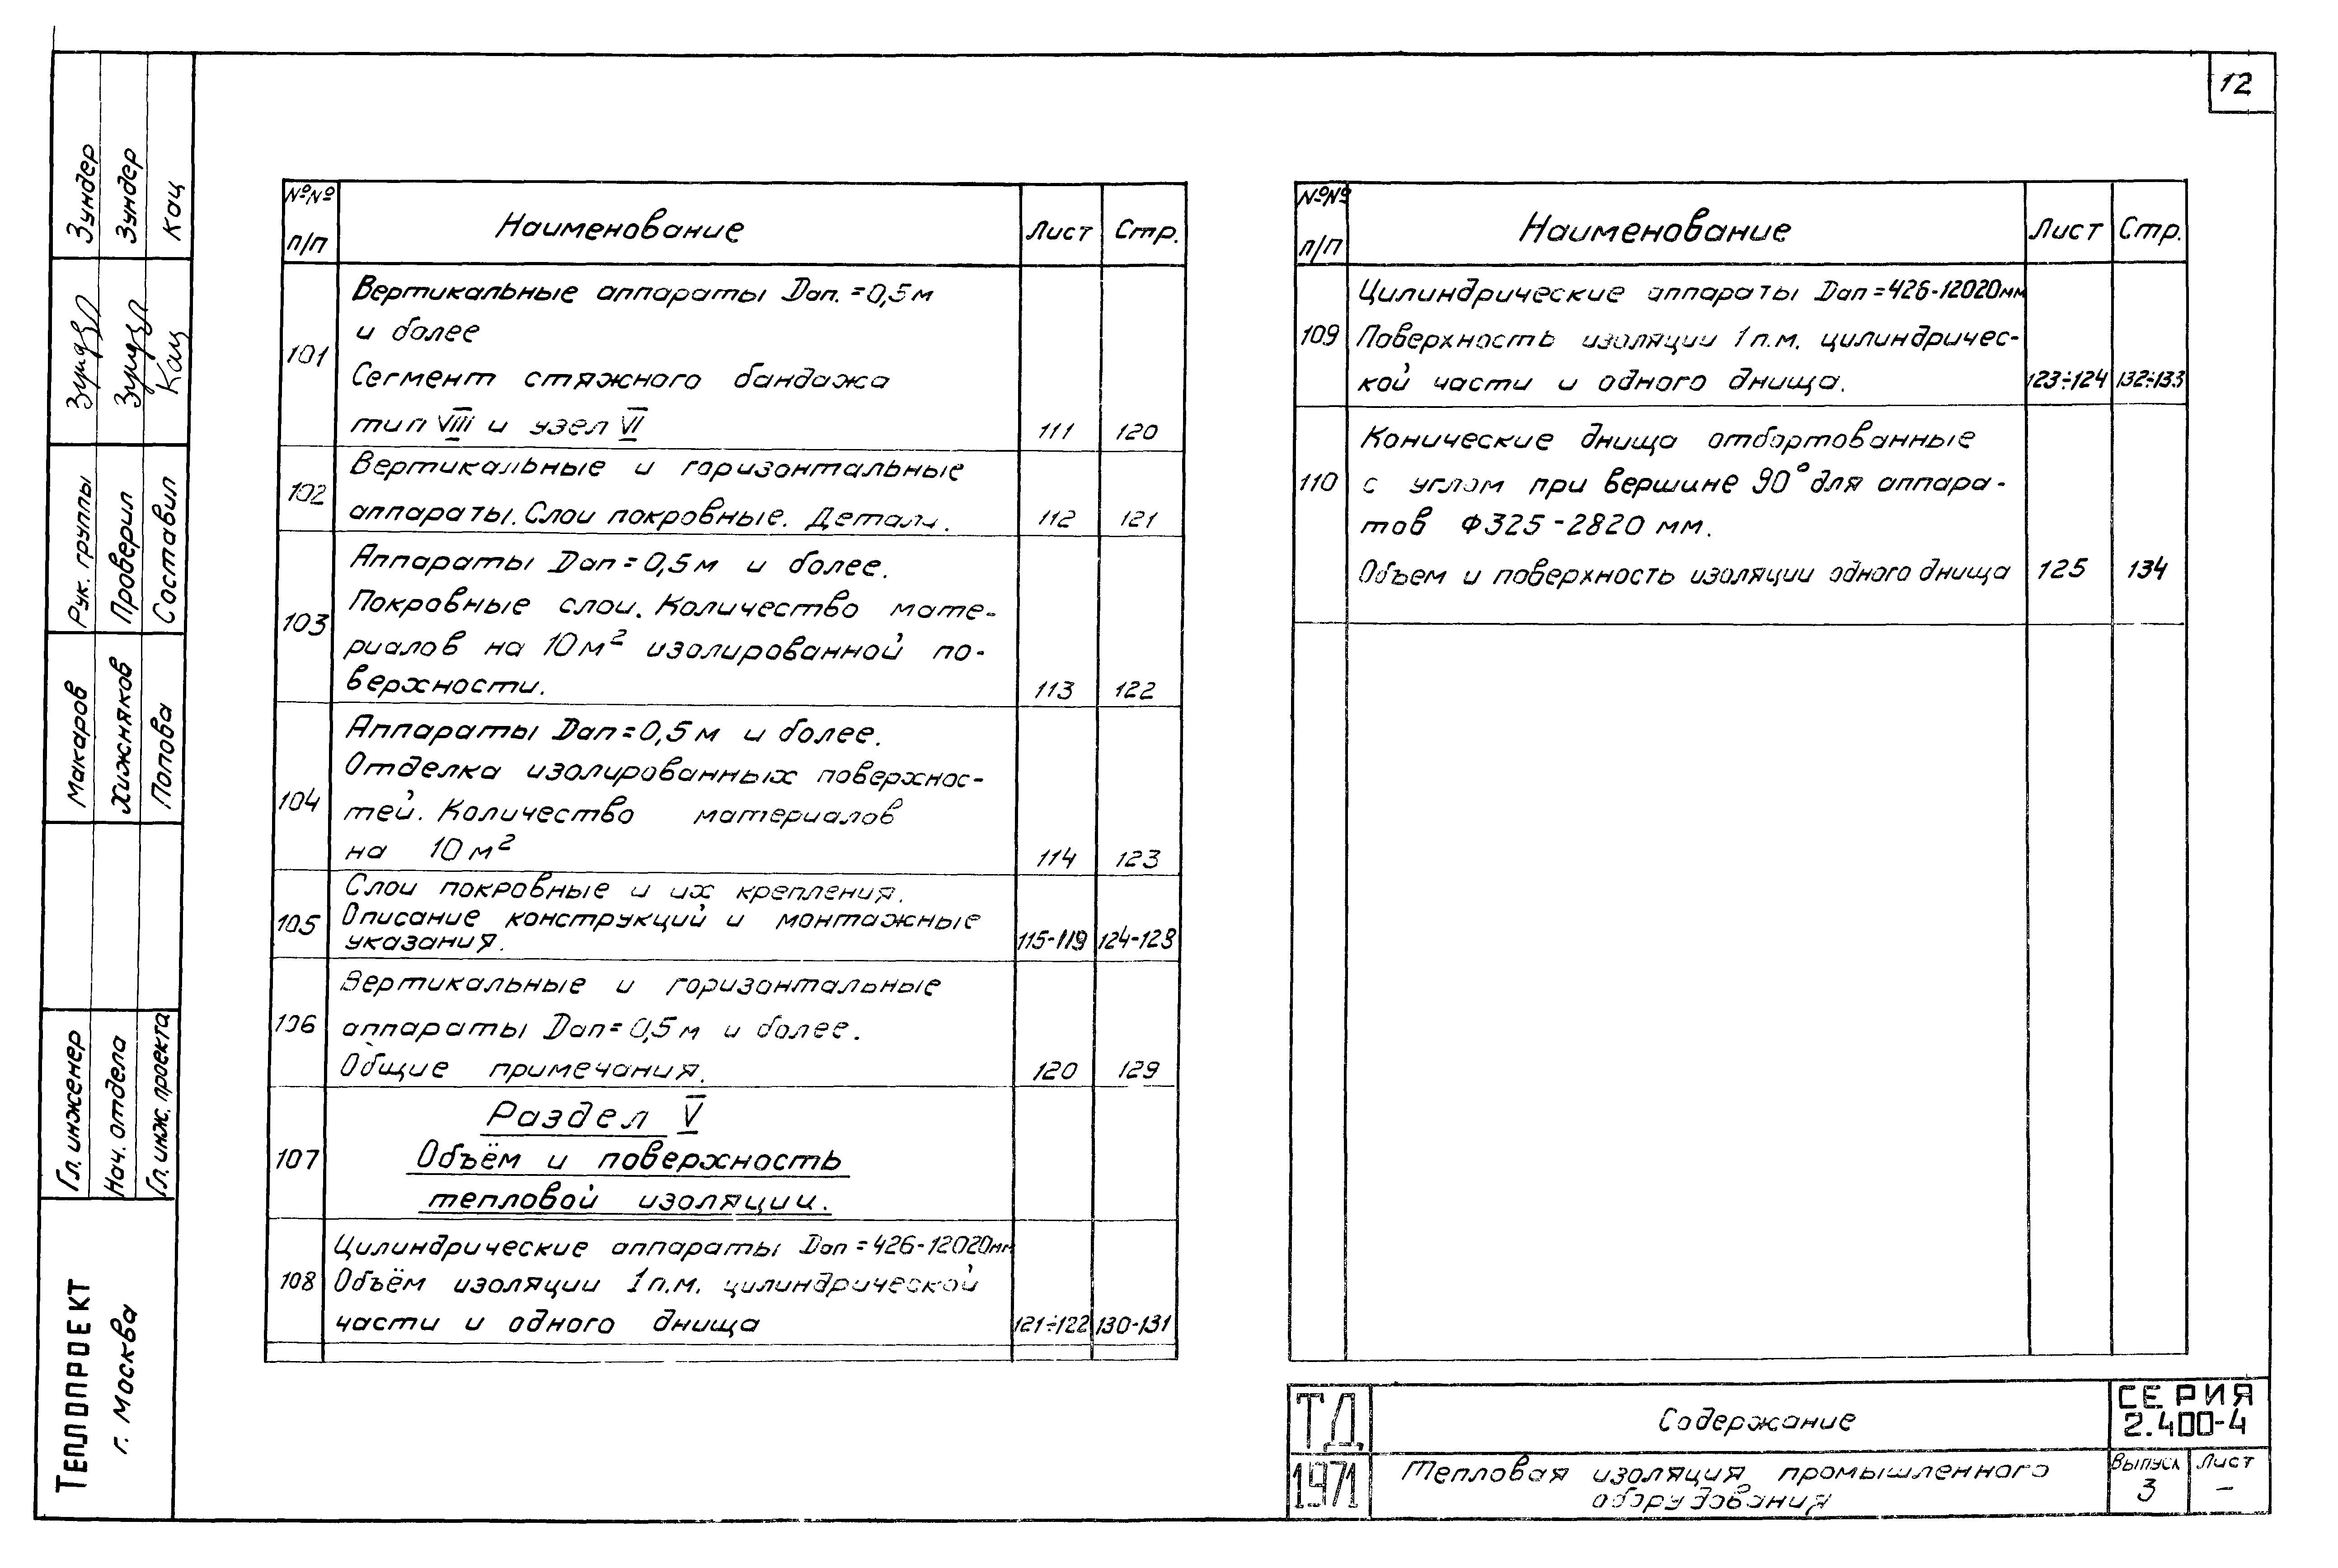 12
№№ п/п Наименование Лист Стр.
Вертикальные аппараты Dап. = 0,5м
и более
101
Сегмент стяжного бандажа
тип VIII и узел VI 111 120
Вертикальные и горизонтальные
102
аппараты. Слои покровные. Детали. 112 121
Аппараты Dап = 0,5м и более.
Покровные слои. Количество мате-
103
риалов на 10м² изолированной по-
верхности. 113 122
Аппараты Dап = 0,5м и более.
Отделка изолированных поверхнос-
104
тей. Количество материалов
на 10м² 114 123
Слои покровные и их крепления.
105 Описание конструкций и монтажные
указания. 115-119 124-128
Вертикальные и горизонтальные
106 аппараты Dап = 0,5м и более.
Общие примечания. 120 129
Раздел V
107 Объём и поверхность
тепловой изоляции.
Цилиндрические аппараты Dап = 426-12020мм
108 Объём изоляции 1п.м. цилиндрической
части и одного днища 121÷122 130-131
№№ п/п Наименование Лист Стр.
Цилиндрические аппараты Dап = 426-12020мм
109 Поверхность изоляции 1п.м. цилиндричес-
кой части и одного днища. 123÷124 132÷133
Конические днища отбортованные
110 с углом при вершине 90° для аппара-
тов Ф325-2820 мм.
Объем и поверхность изоляции одного днища 125 134
ТД
1971
Содержание
Тепловая изоляция промышленного
оборудования
СЕРИЯ
2.400-4
Выпуск
3
Лист
–
Теплопроект
г. Москва
Гл. инженер Макаров
Нач. отдела Хижняков
Гл. инж. проекта Попова
Рук. группы Зундер
Проверил Зундер
Составил Кац Кац